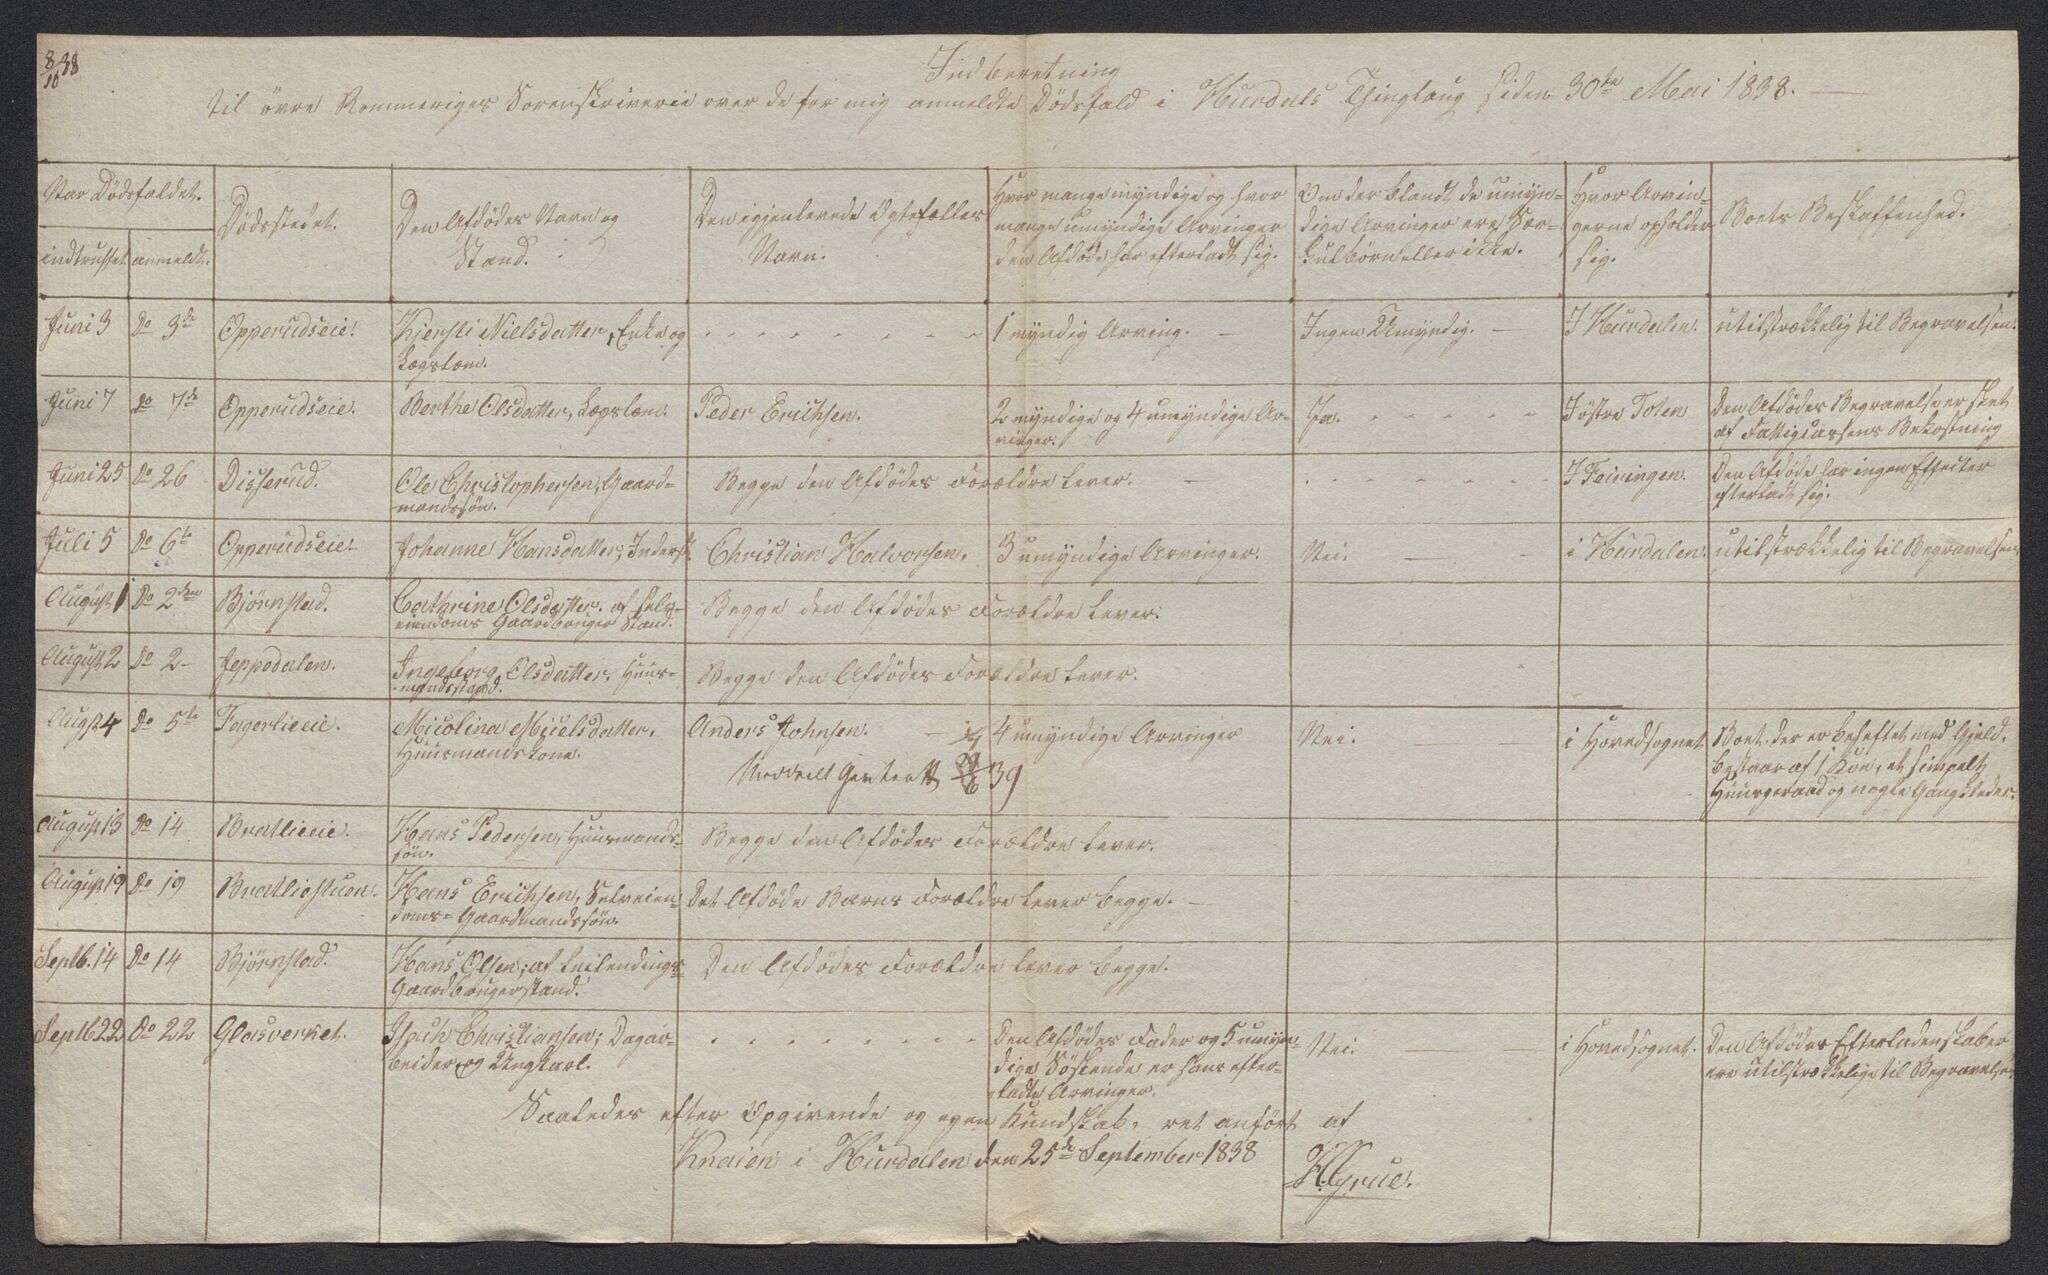 8/10 38
Indberetning
til övre Rommeriges Sorenskriverie over de for mig anmeldte Dödsfald i Hurdals Thinglaug siden 30te Mai 1838.
Naar Dödsfaldet.
indtruffet
anmeldt.
Dödsstedet.
Den Afdödes Navn og
Stand.
Den igjenlevende Ægtefælles
Navn.
Hvor mange myndige og hvor
mange umyndige Arvinger
den Afdöde har efterladt sig.
Om der blandt de umyn-
dige Arvinger ere Sær-
kulbörn eller ikke.
Hvor Arvin-
gerne opholder
sig.
Boets Beskaffenhed.
Juni 3
Do 3de
Opperudseie.
Kjersti Nielsdatter, Enke og
Lægslem.
1 myndig Arving. -
Ingen Umyndig. -
I Hurdalen.
utilstrækkelig til Begravelsen.
Juni 7
Do 7de
Opperudseie.
Berthe Olsdatter, Lægslem.
Peder Erichsen.
2 myndige og 4 umyndige Ar-
vinger.
Ja.
I östre Toten
Den Afdödes Begravelse er skeet
af Fattigcassens Bekostning
Juni 25
Do 26
Disserud.
Ole Christophersen, Gaard-
mandssön.
Begge den Afdödes Forældre lever. -
I Feiringen.
Den Afdöde har ingen Effecter
efterladt sig.
Juli 5
Do 6te
Opperudseie.
Johanne Hansdatter, Inderst.
Christian Halvorsen.
3 umyndige Arvinger.
Nei.
i Hurdalen.
utilstrækkelig til Begravelsen.
August 1
Do 2den
Bjørnstad.
Cathrine Olsdatter. af selv-
eiendoms Gaardbruger Stand.
Begge den Afdödes Forældre lever.
August 2
Do 2-
Jeppedalen.
Ingeborg Olsdatter, Huus-
mandsstand.
Begge den Afdödes Forældre lever.
Augst 4
Do 5te
Fagerlieeie.
Nicolina Nielsdatter,
Huusmandskone.
Anders Johnsen. -
4 umyndige Arvinger
39
Nei.
i Hovedsognet
Boet der er beheftet med Gjeld.
bestaar af 1 Koe, et simpelt
Huusgeraad og nogle Gangklæder.
August 13
Do 14
Bratlieeie.
Hans Pedersen, Huusmands-
sön.
Begge den Afdödes Forældre lever.
August 19
Do 19
Bratliestuen.
Hans Erichsen, Selveien-
doms- Gaardmandssön.
Det Afdöde Barns Forældre lever begge. -
Septb. 14
Do 14
Bjørnstad.
Hans Olsen, af Leilendings-
Gaardbrugerstand.
Den Afdödes Forældre lever begge.
Septb 22
Do 22
Glasverket.
Isach Christiansen; Dagar-
beider og Ungkarl.
Den Afdödes Fader og 5 umyn-
dige Söskende er hans efter-
ladte Arvinger.
Nei.
i Hovedsognet.
Den Afdödes Efterladenskaber
ere utilstrækkelige til Begravelsen
Saaledes efter Opgivende og egen Kundskab, ret anfört af
Knaien i Hurdalen den 25de September 1838
H Grue.